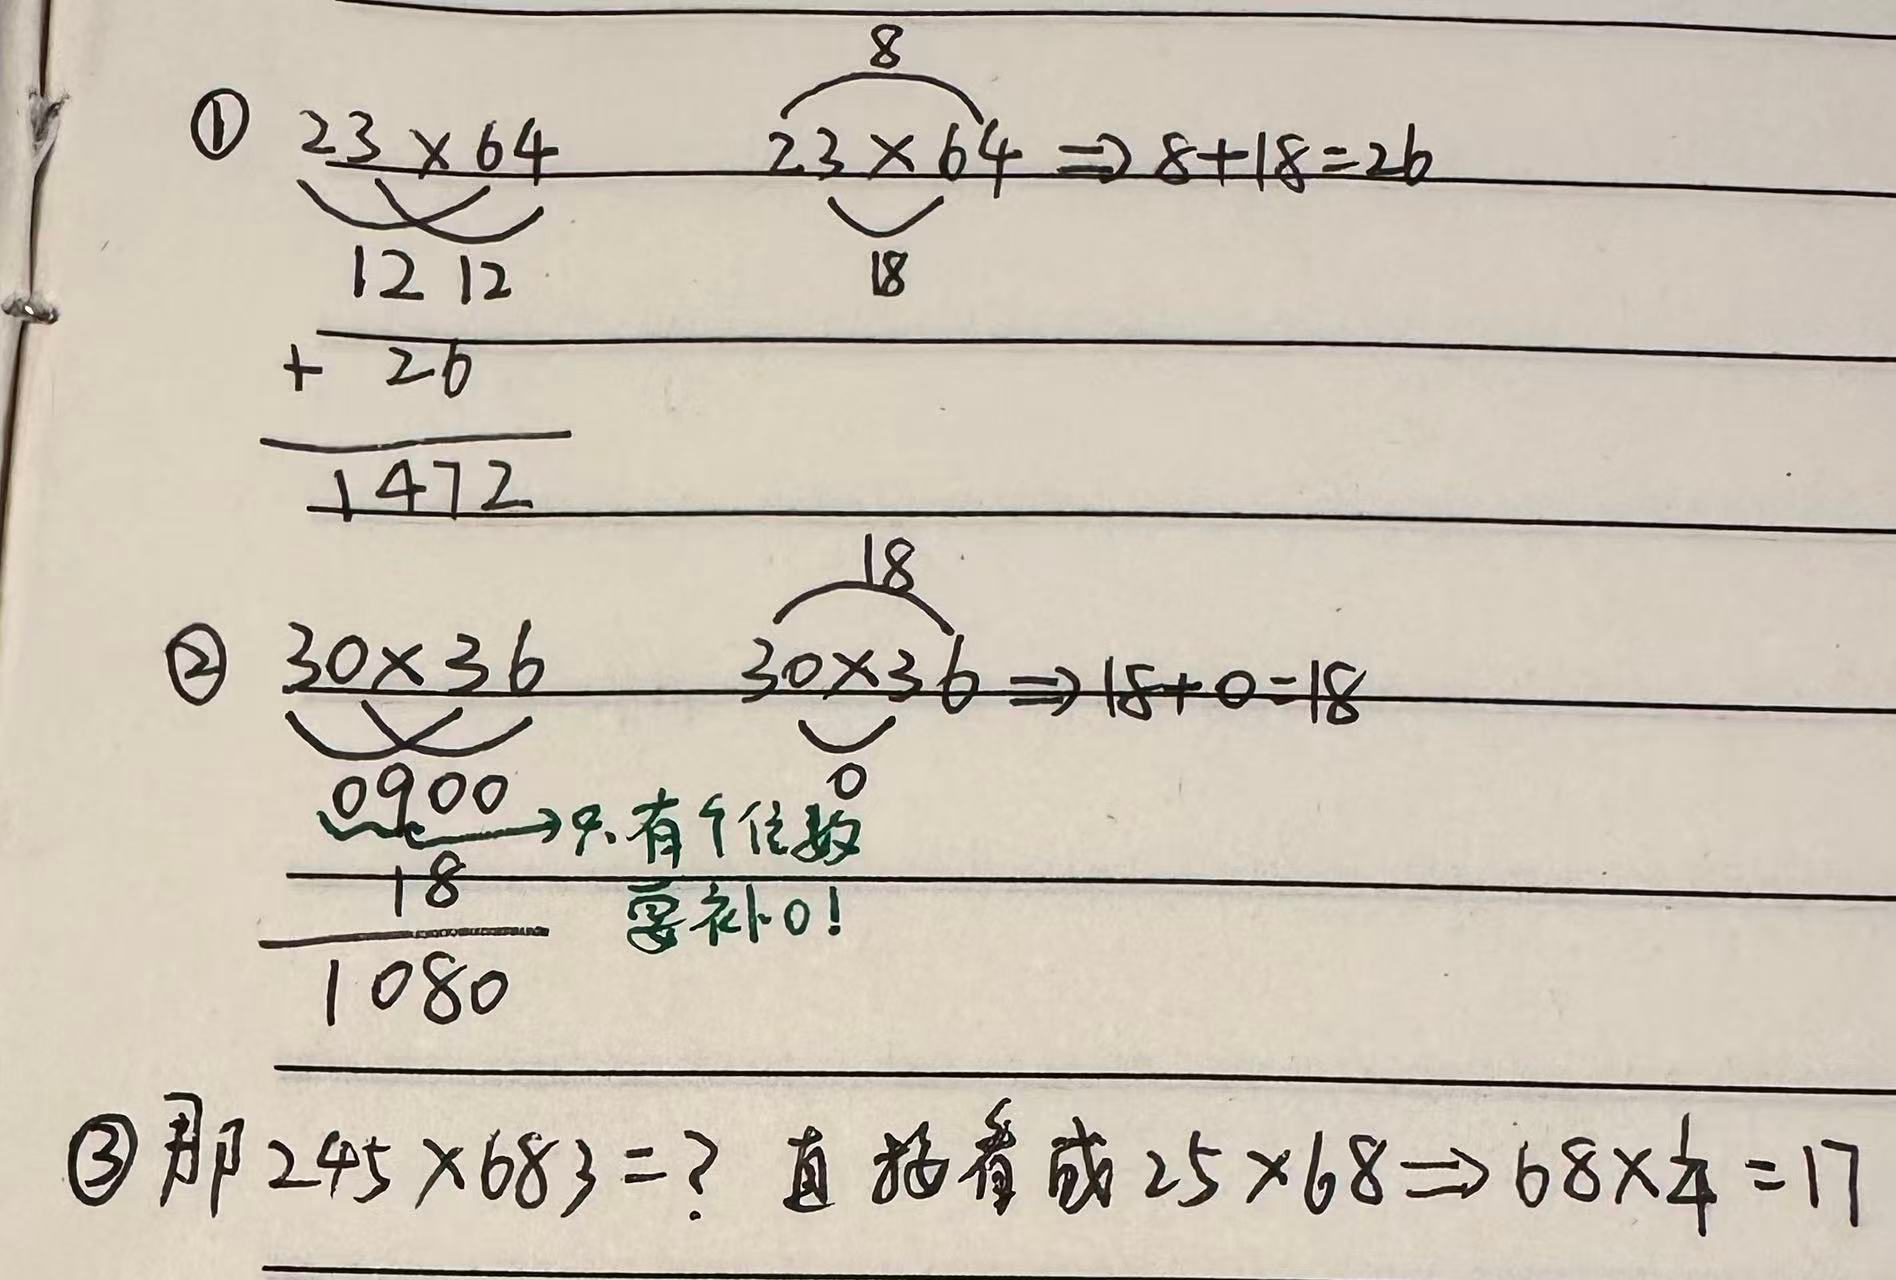 8
① 23×64 23×64 ⇒ 8+18=26
12 12 18
+ 26
1472
18
② 30×36 30×36 ⇒ 18+0=18
0900 0
→只有个位数
18 要补0!
1080
③ 那245×683=? 直接看成25×68⇒68×1/4=17